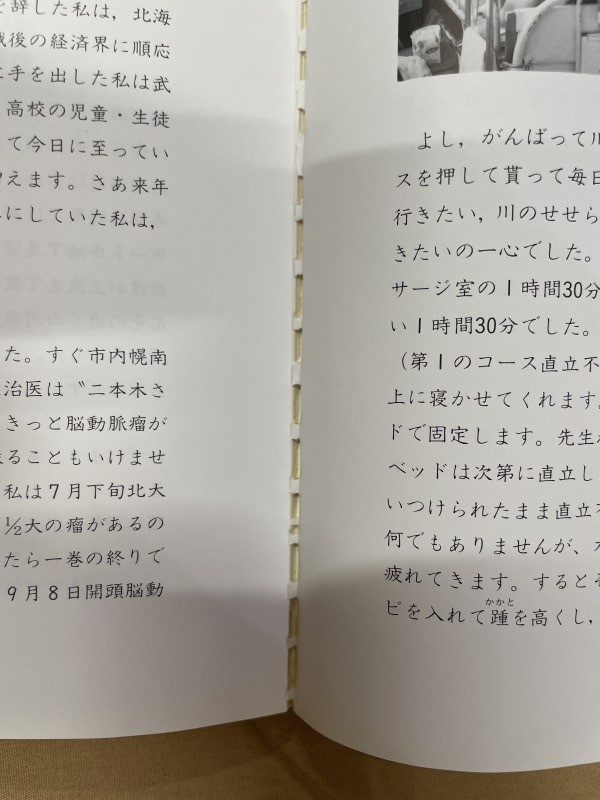 を辞した私は，北海
後の経済界に順応
手を出した私は武
高校の児童・生徒
て今日に至ってい
えます。さあ来年
にしていた私は，
た。すぐ市内幌南
治医は〝二本木さ
きっと脳動脈瘤が
ることもいけませ
私は７月下旬北大
½大の瘤があるの
たら一巻の終りで
９月８日開頭脳動
よし，がんばって
スを押して貰って毎日
行きたい，川のせせら
きたいの一心でした。
サージ室の１時間30分
い１時間30分でした。
（第１のコース直立不
上に寝かせてくれます。
ドで固定します。先生
ベッドは次第に直立し
いつけられたまま直立不
何でもありませんが、
疲れてきます。すると
かかと
ピを入れて踵を高くし，